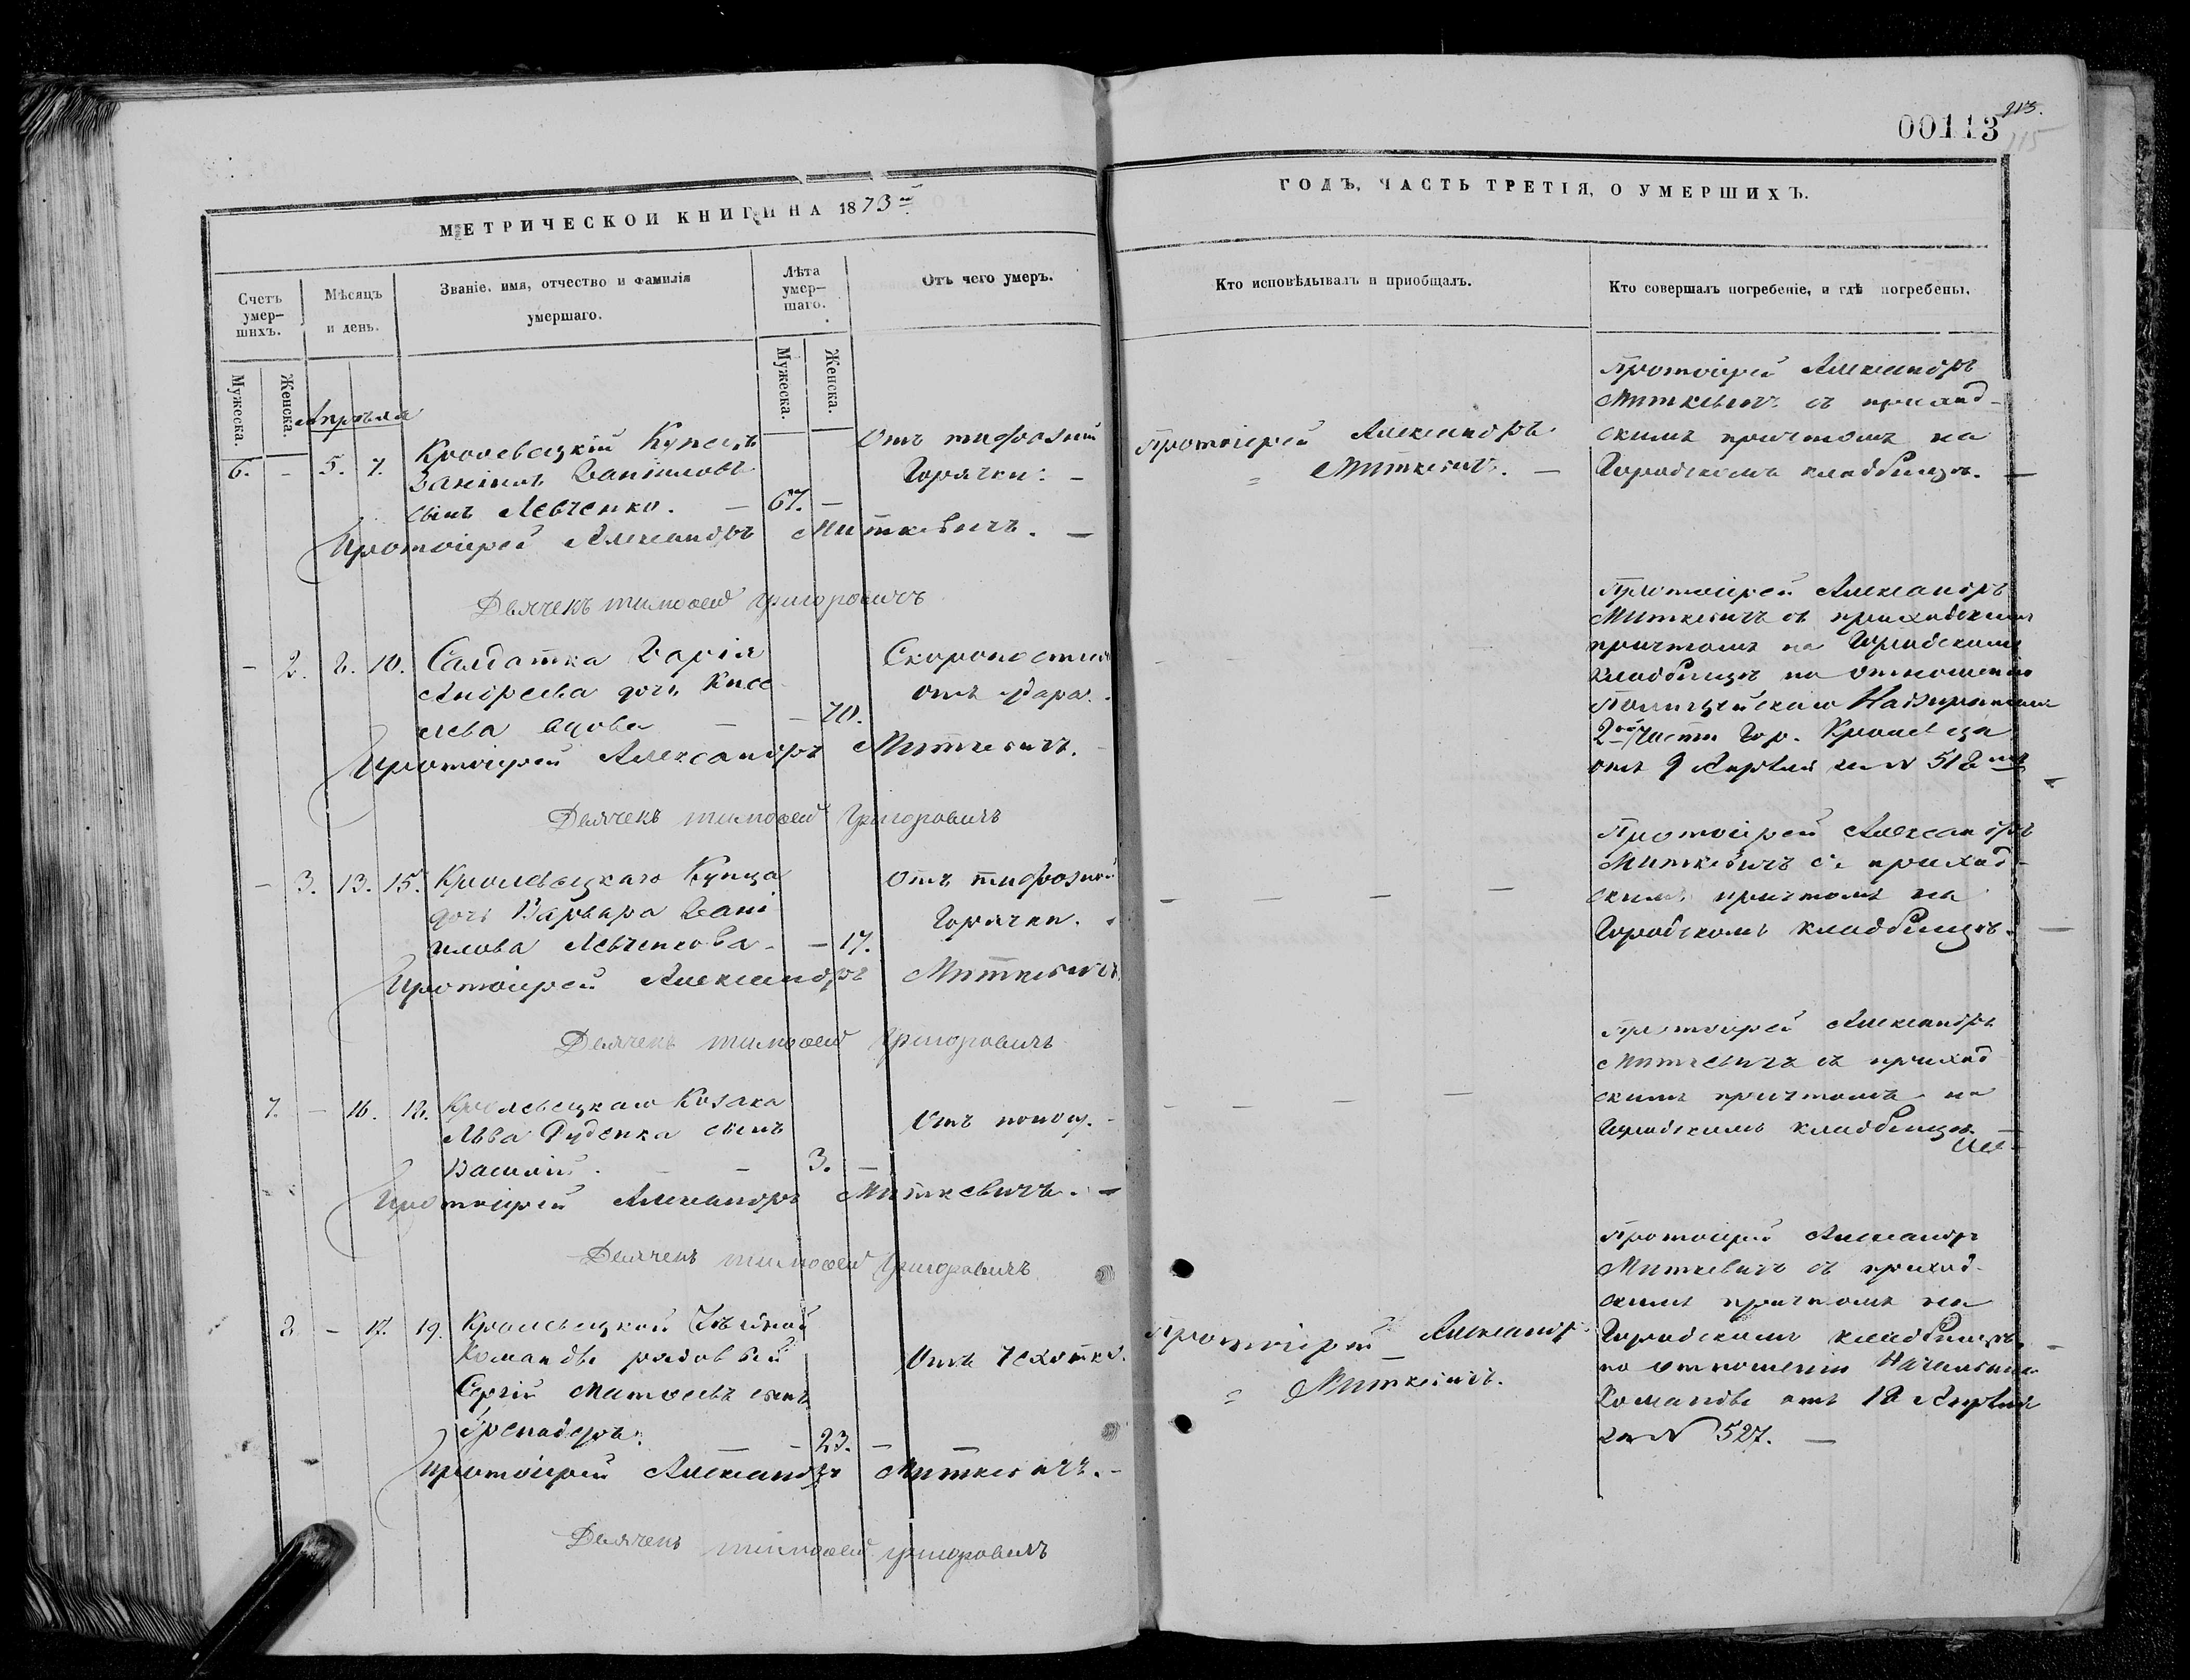 213.
00113
115
МЕТРИЧЕСКОЙ КНИГИ НА 1873й
ГОДЪ, ЧАСТЬ ТРЕТІЯ, О УМЕРШИХЪ.
Счетъ умер-шихъ.
Мѣсяцъ и день.
Званіе, имя, отчество и фамилія умершаго.
Лѣта умер-шаго.
Отъ чего умеръ.
Кто исповѣдывалъ и пріобщалъ.
Кто совершалъ погребеніе, и гдѣ погребены.
Мужеска.
Женска.
Мужеска.
Женска.
Апрѣля
6. – 5. 7. Кролевецкій Купецъ
Даніилъ Даніиловъ
сынъ Левченко. – 67. –
Отъ тифозной
Горячки. –
Протоіерей Александръ
Миткевичъ. –
Протоіерей Александръ
Миткевичъ съ приход-
скимъ причтомъ на
Городскомъ кладбищѣ. –
Протоіерей Александръ Миткевичъ. –
Дьячекъ Тимофей Григоровичъ
– 2. 8. 10. Солдатка Дарія
Андреева дочь Кисе-
лева вдова – – 70.
Скоропостижно
отъ удара.
Протоіерей Александръ
Миткевичъ съ приходскимъ
причтомъ на Городскомъ
кладбищѣ по отношенію
Полицейскаго Надзирателя
2ой Части Гор. Кролевца
отъ 9 Апрѣля за № 518мъ
Протоіерей Александръ Миткевичъ. –
Дьячекъ Тимофей Григоровичъ
– 3. 13. 15. Кролевецкаго Купца
дочь Варвара Дані-
илова Левченкова – – 17.
Отъ тифозной
Горячки.
Протоіерей Александръ
Миткевичъ съ приход-
скимъ причтомъ на
Городскомъ кладбищѣ. –
Протоіерей Александръ Миткевичъ
Дьячекъ Тимофей Григоровичъ
7. – 16. 18. Кролевецкаго Козака
Льва Руденка сынъ
Василій. – – 3. –
Протоіерей Александръ
Миткевичъ съ приход-
скимъ причтомъ на
Городскомъ кладбищѣ. –
Протоіерей Александръ Миткевичъ. –
Дьячекъ Тимофей Григоровичъ
8. – 17. 19. Кролевецкой Уѣздной
Команды рядовый
Сергій Матѳеевъ сынъ
Гренадеръ. – 23. –
Отъ Чахотки.
Протоіерей Александръ
Миткевичъ.
Протоіерей Александръ
Миткевичъ съ приход-
скимъ причтомъ на
Городскомъ кладбищѣ
по отношенію Начальника
Команды отъ 18 Апрѣля
за № 527. –
Протоіерей Александръ Миткевичъ. –
Дьячекъ Тимофей Григоровичъ